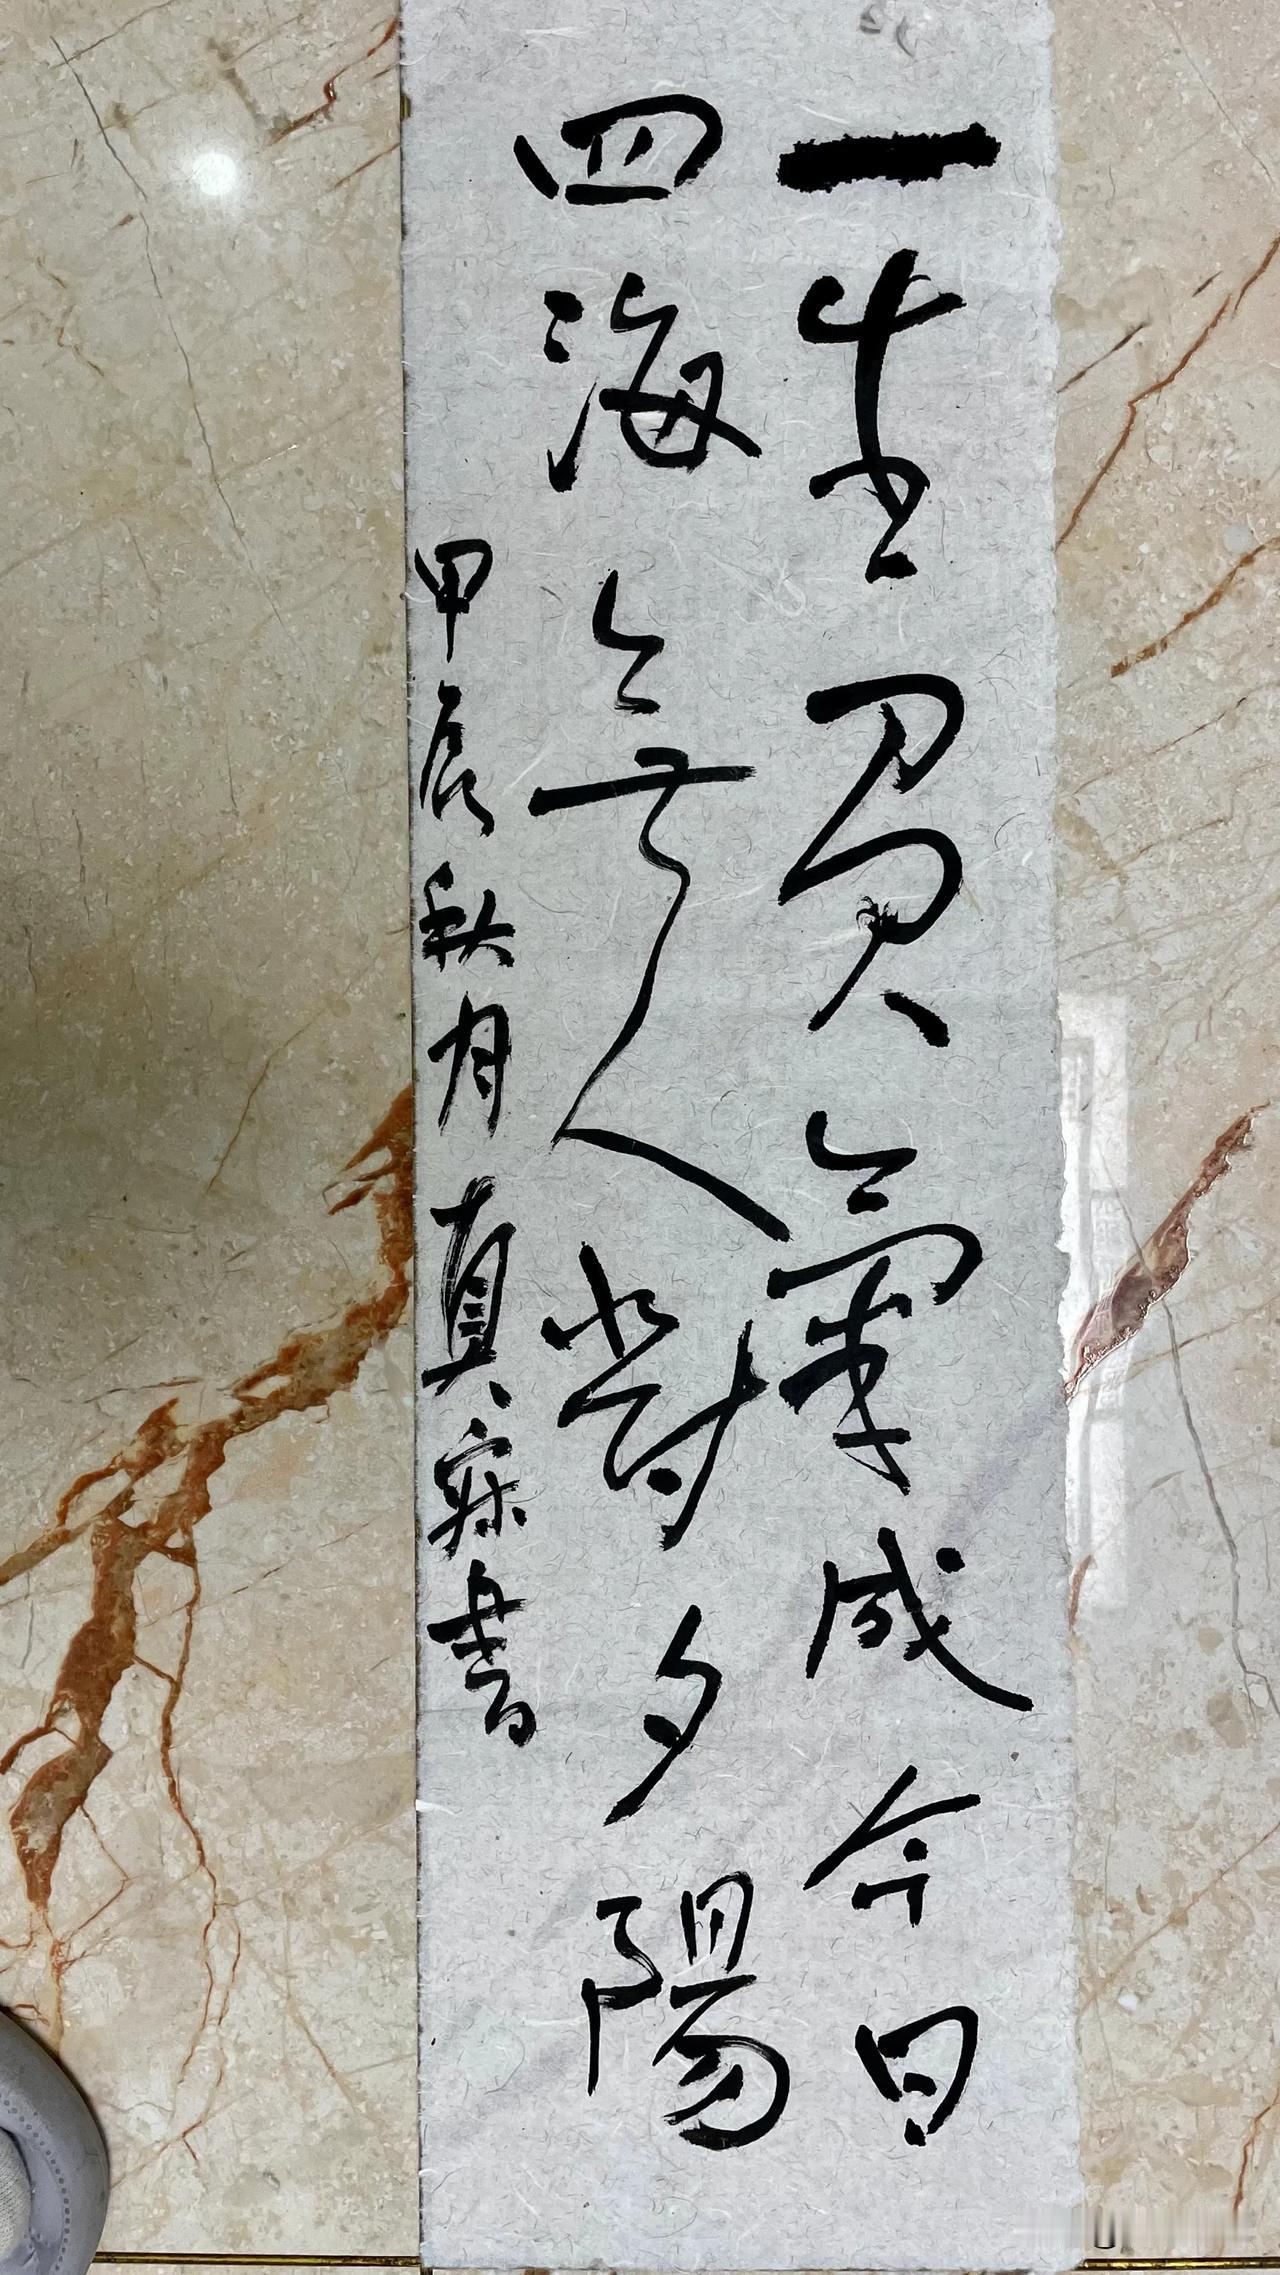 一生負氣成今日
四海無人對夕陽
甲辰秋月真寐書